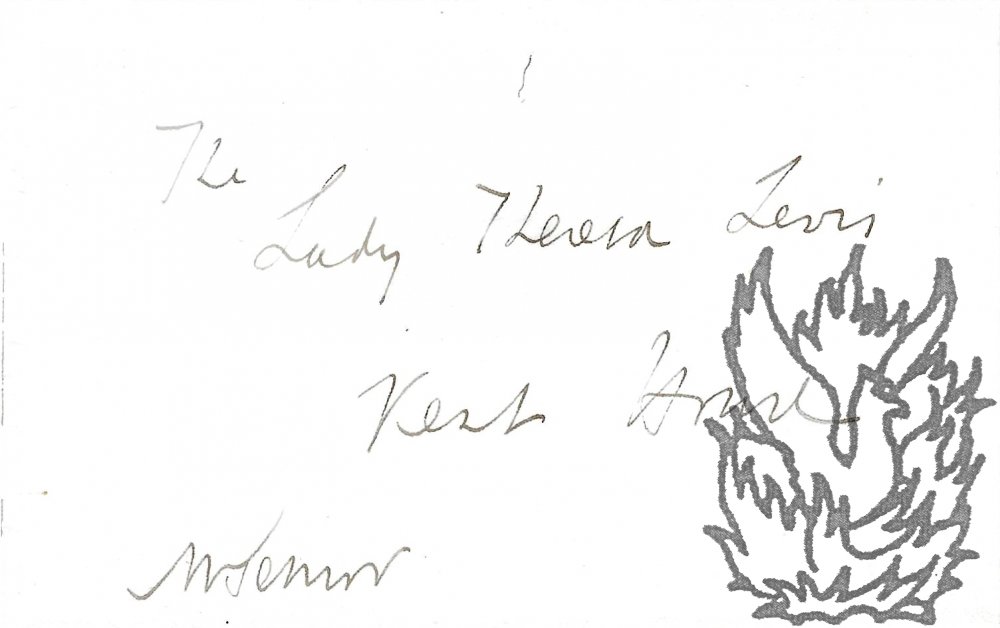 The
Lady Theresa Lewis
Kent House
NWSenior